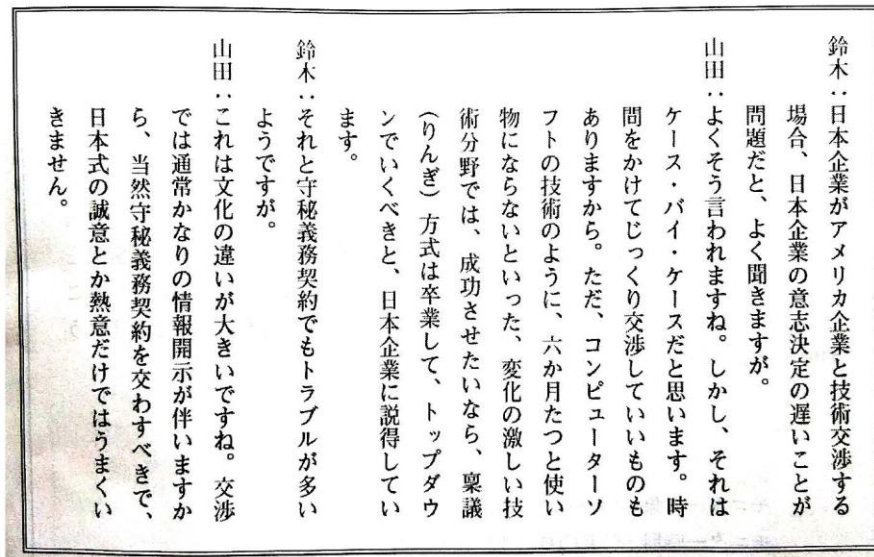 鈴木：日本企業がアメリカ企業と技術交渉する
場合、日本企業の意志決定の遅いことが
問題だと、よく聞きますが。
山田：よくそう言われますね。しかし、それは
ケース・バイ・ケースだと思います。時
問をかけてじっくり交渉していいものも
ありますから。ただ、コンピューターソ
フトの技術のように、六か月たつと使い
物にならないといった、変化の激しい技
術分野では、成功させたいなら、稟議
（りんぎ）方式は卒業して、トップダウ
ンでいくべきと、日本企業に説得してい
ます。
鈴木：それと守秘義務契約でもトラブルが多い
ようですが。
山田：これは文化の違いが大きいですね。交渉
では通常かなりの情報開示が伴いますか
ら、当然守秘義務契約を交わすべきで、
日本式の誠意とか熱意だけではうまくい
きません。